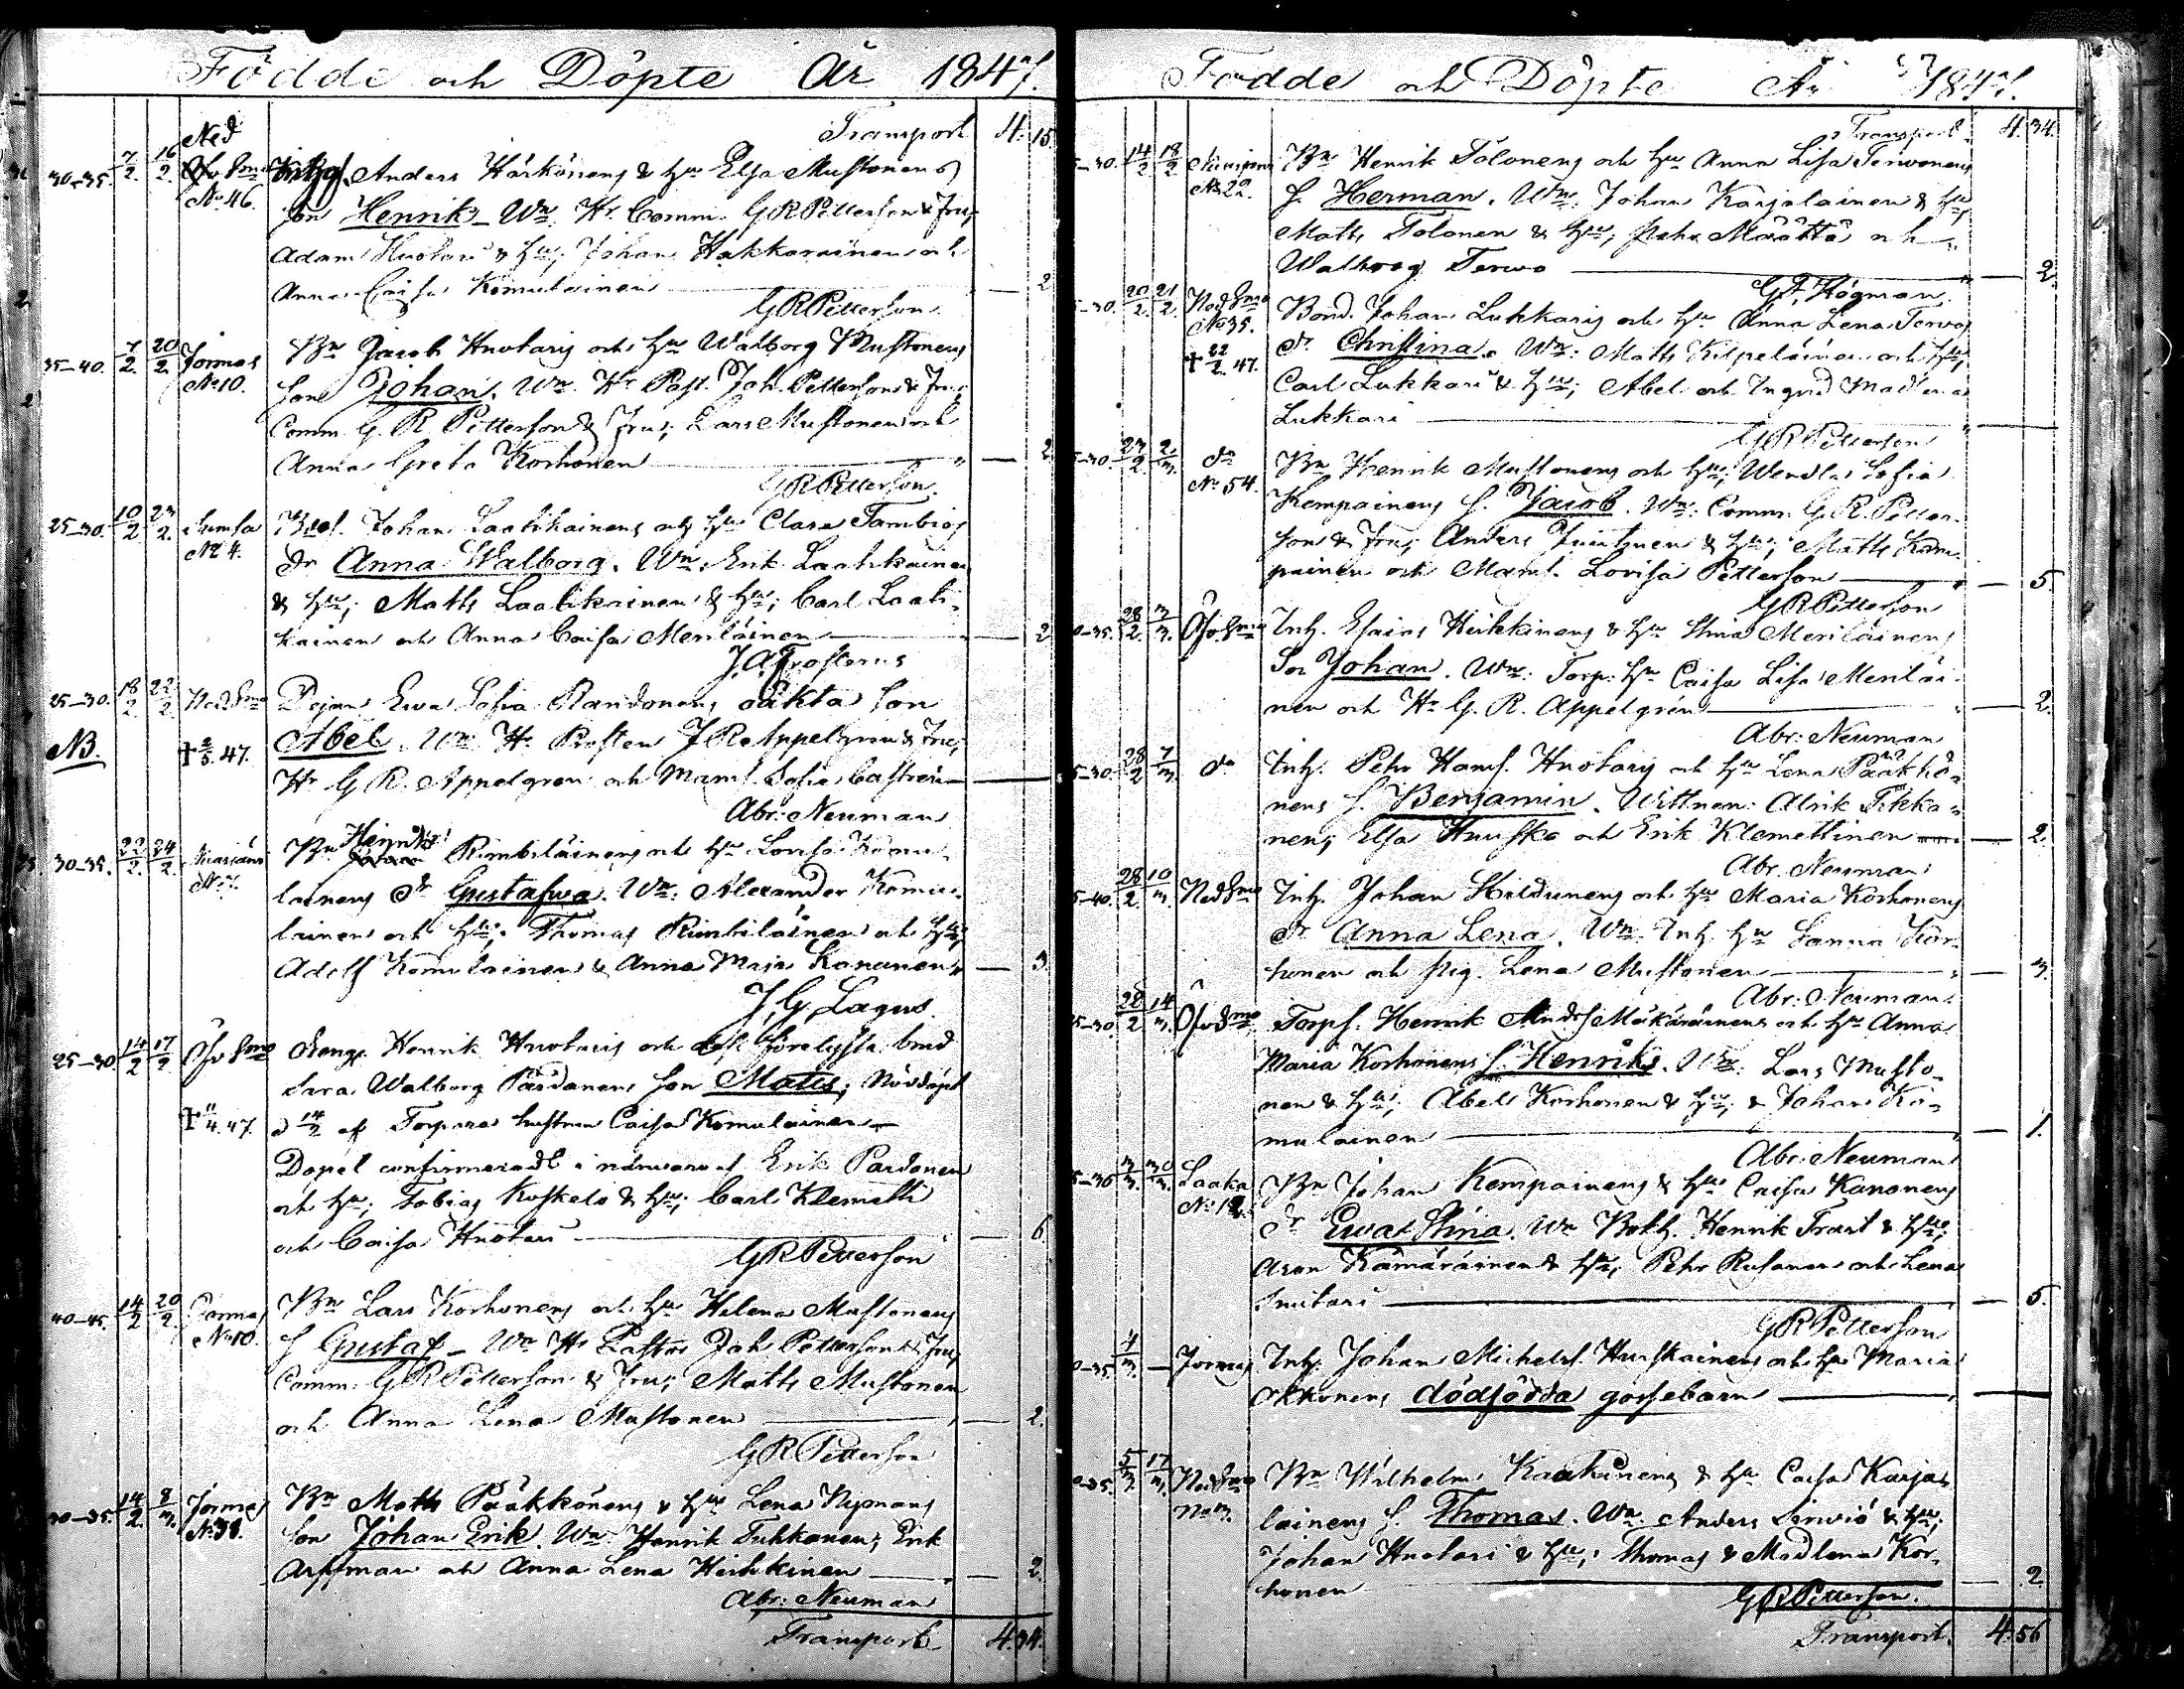 Födde och Döpte År 1847.
Transport 4. 15.
30-35. 7/2. 16/2. Ned
No 46. Anders Härkönens & hu Elsa Mustonens
son Henrik - Wn. Hr Comm. G R Petterson & Fru;
Adam Huotari & hu; Johan Hakkarainen och
Anna Caisa Komulainen 2
G R Petterson.
35-40. 7/2. 20/2. Jormas Bn Jacob Huotaris och hu Walborg Mustonens
No 10. son Johan. Wn. Hr Past. Joh. Petterson & Fru;
Comm. G. R. Petterson & Fru; Lars Mustonen och
Anna Greta Korhonen 2
G R Petterson.
25-30. 10/2 23/2. Sumsa Johan Laatikainens och hu Clara Tambios
No 4. dr Anna Walborg. Wn. Erik Laatikainen
& hu; Matts Laatikainen & hu; Carl Laati-
kainen och Anna Caisa Meriläinen 2
J. A. Frosterus
25-30. 18/2 22/2 Ned Pojan Ewa Sofia Randonens oäkta son
NB. † 2/3. 47. Abel. Wn Hr Prosten J R Appelgren & Fru;
Hr G R. Appelgren och Mams. Sofia Castrén
Abr: Neuman
30-35. 22/2. 24/2. Bn Henrik Rimbiläinens och hu Lovisa Komu-
lainens dr Gustafwa. Wn: Alexander Komu-
lainen och hu; Thomas Rimbiläinen och hu;
Adolf Komulainen & Anna Maja Kananen 3.
J. G. Lagus.
25-30. 14/2 17/2 Öfv Drengs Henrik Huotaris och dess förelyste brud
Sara Walborg Pardanens son Mats; Nöddöpt
† 11/4. 47. d 14/2 af Torpare hustrun Caisa Komulainen
Dopet confirmeradt i närwaro af Erik Pardanen
och hu; Tobias Koskelo & hu; Carl Klemetti
och Caisa Huotari 6
G R Petterson
40-45. 14/2 20/2. Jormas Bn Lars Korhonens och hu Helena Mustonens
No 10. s Gustaf - Wn Hr Pastor Joh Petterson & Fru;
Comm. G R Petterson & Fru; Matts Mustonen
och Anna Lena Mustonen 2.
G R Petterson
30-35. 14/2. 8/3. Jormas Bn Matts Pääkkönens & hu Lena Nymans
son Johan Erik. Wn. Henrik Tukkanen; Erik
Arffman och Anna Lena Heikkinen 2.
Abr: Neuman
Transport 4. 34.
Födde och Döpte År 1847.
Transport 4. 34.
5-30. 14/2 18/2 Bn Henrik Tolonens och hu Anna Lisa Terwonens
No 22. s. Herman. Wn. Johan Karjalainen & hu;
Matts Tolonen & hu; Pehr Määttä och
Walborg Terwo 2.
G. F. Högman.
5-30. 20/2. 21/2. Ned Bond. Johan Lukkaris och hu Anna Lena Terwos
No 35. dr Christina. Wn: Matts Kilpeläinen och hu;
† 22/2. 47. Carl Lukkari & hu; Abel och Ingrid Madlena
Lukkari
G R Petterson
5-30. 23/2. 2/3. do Bn Henrik Mustonens och hu; Wendla Sofia
No 54. Kempainens s. Jacob. Wn: Comm. G. R. Petter-
son & Fru; Anders Juntunen & hu; Matts Kem-
painen och Mams. Lovisa Petterson 5.
G R Petterson
0-35. 28/2. 3/3. Öfv. Inh. Esaias Heikkinens & hu Stina Meriläinens
Son Johan. Wn: Torp: hu Caisa Lisa Meriläi-
nen och Hr G. R. Appelgren 2.
Abr: Neuman
5-30. 28/2 7/3. do Inh. Pehr Hans. Huotaris och hu Lena Pääkkö-
nens s. Benjamin. Wittnen: Alrik Tikka-
nen; Elsa Huusko och Erik Klemettinen 2.
Abr. Neuman
5-40. 28/2. 10/3. Ned Inh. Johan Kildunens och hu Maria Korhonens
dr Anna Lena. Wn. Inh. hu Sanna Kor-
honen och pig. Lena Mustonen 3.
Abr: Neuman
5-30 28/2 14/3. Öfv Torps. Henrik Anders Mäkäräinens och hu Anna
Maria Korhonens s. Henrik. Wn: Lars Musto-
nen & hu; Abel Korhonen & hu; & Johan Ko-
mulainen 1.
Abr: Neuman
5-30 3/3. 30/3. Laaka Bn Johan Kempainens & hu Caisa Kanonens
No 12. dr Ewa Stina. Wn Henrik Trast & hu;
Aron Kämäräinen & hu; Pehr Rusanen och Lena
5.
G R Petterson
0-35. 4/3. Jormas Inh. Johan Michels. Hurskainens och hu Maria
Okkonens dödfödda gossebarn
0-35. 5/3. 17/3. Ned Bn Wilhelm Kaatinens & hu Caisa Karja-
No 3. lainens s. Thomas. Wn: Anders Serwiö & hu;
Johan Huotari & hu; Thomas & Madlena Kor-
honen 2.
G R Petterson.
Transport. 4. 56